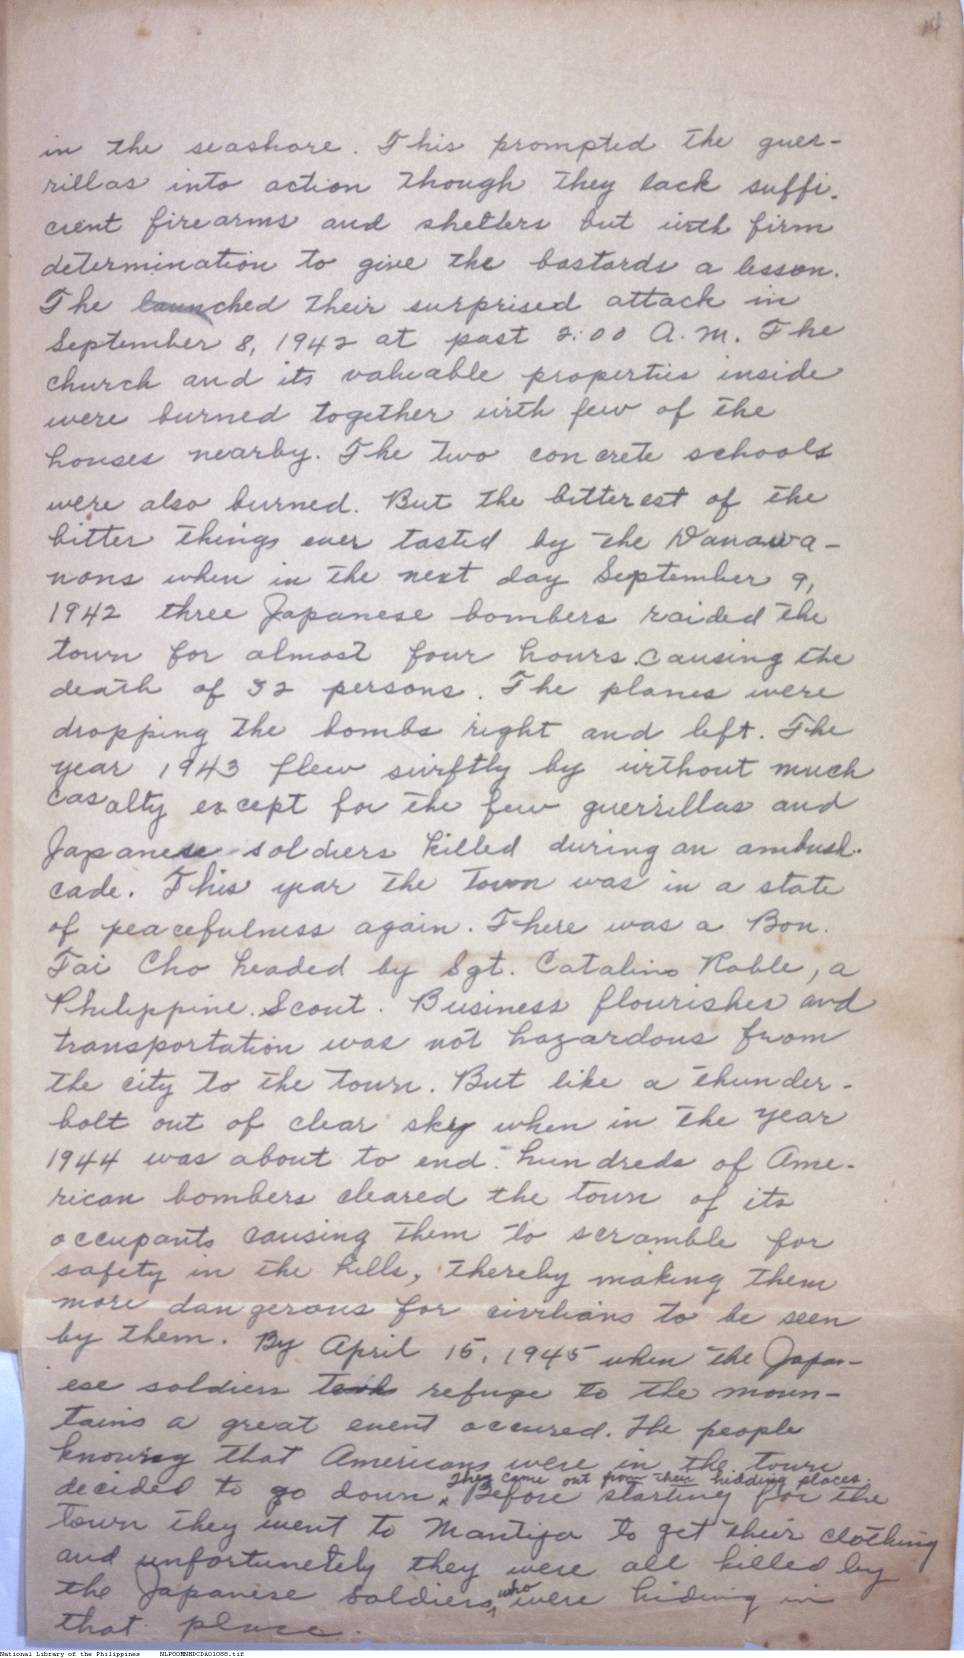 14
in the seashore. This prompted the guer-
rillas into action though they lack suffi-
cient firearms and shelters but with firm
determination to give the bastards a lesson.
The launched their surprised attack in
September 8, 1942 at past 2:00 A.M. The
church and its valuable properties inside
were burned together with few of the
houses nearby. The two concrete schools
were also burned. But the bitterest of the
bitter things ever tasted by the Danawa-
nons when in the next day September 9,
1942 three Japanese bombers raided the
town for almost four hours causing the
death of 32 persons. The planes were
dropping the bombs right and left. The
year 1943 flew swiftly by without much
casalty except for the few guerrillas and
Japanese soldiers killed during an ambush-
cade. This year the town was in a state
of peacefulness again. There was a Bon.
Tai Cho headed by Sgt. Catalino Roble, a
Philippine Scout. Business flourishes and
transportation was not hazardous from
the city to the town. But like a thunder-
bolt out of clear sky when in the year
1944 was about to end hundreds of Ame-
rican bombers cleared the town of its
occupants causing them to scramble for
safety in the hills, thereby making them
more dangerous for civilians to be seen
by them. By April 15, 1945 when the Japan-
ese soldiers took refuge to the moun-
tains a great event occured. The people
knowing that Americans were in the town
They came out from their hidding places.
decided to go down. Before starting for the
town they went to Mantija to get their clothing
and unfortunetely they were all killed by
the Japanese soldiers, who were hiding in
that place.
National Library of the Philippines NLPOOMNHDCDA01088.tif